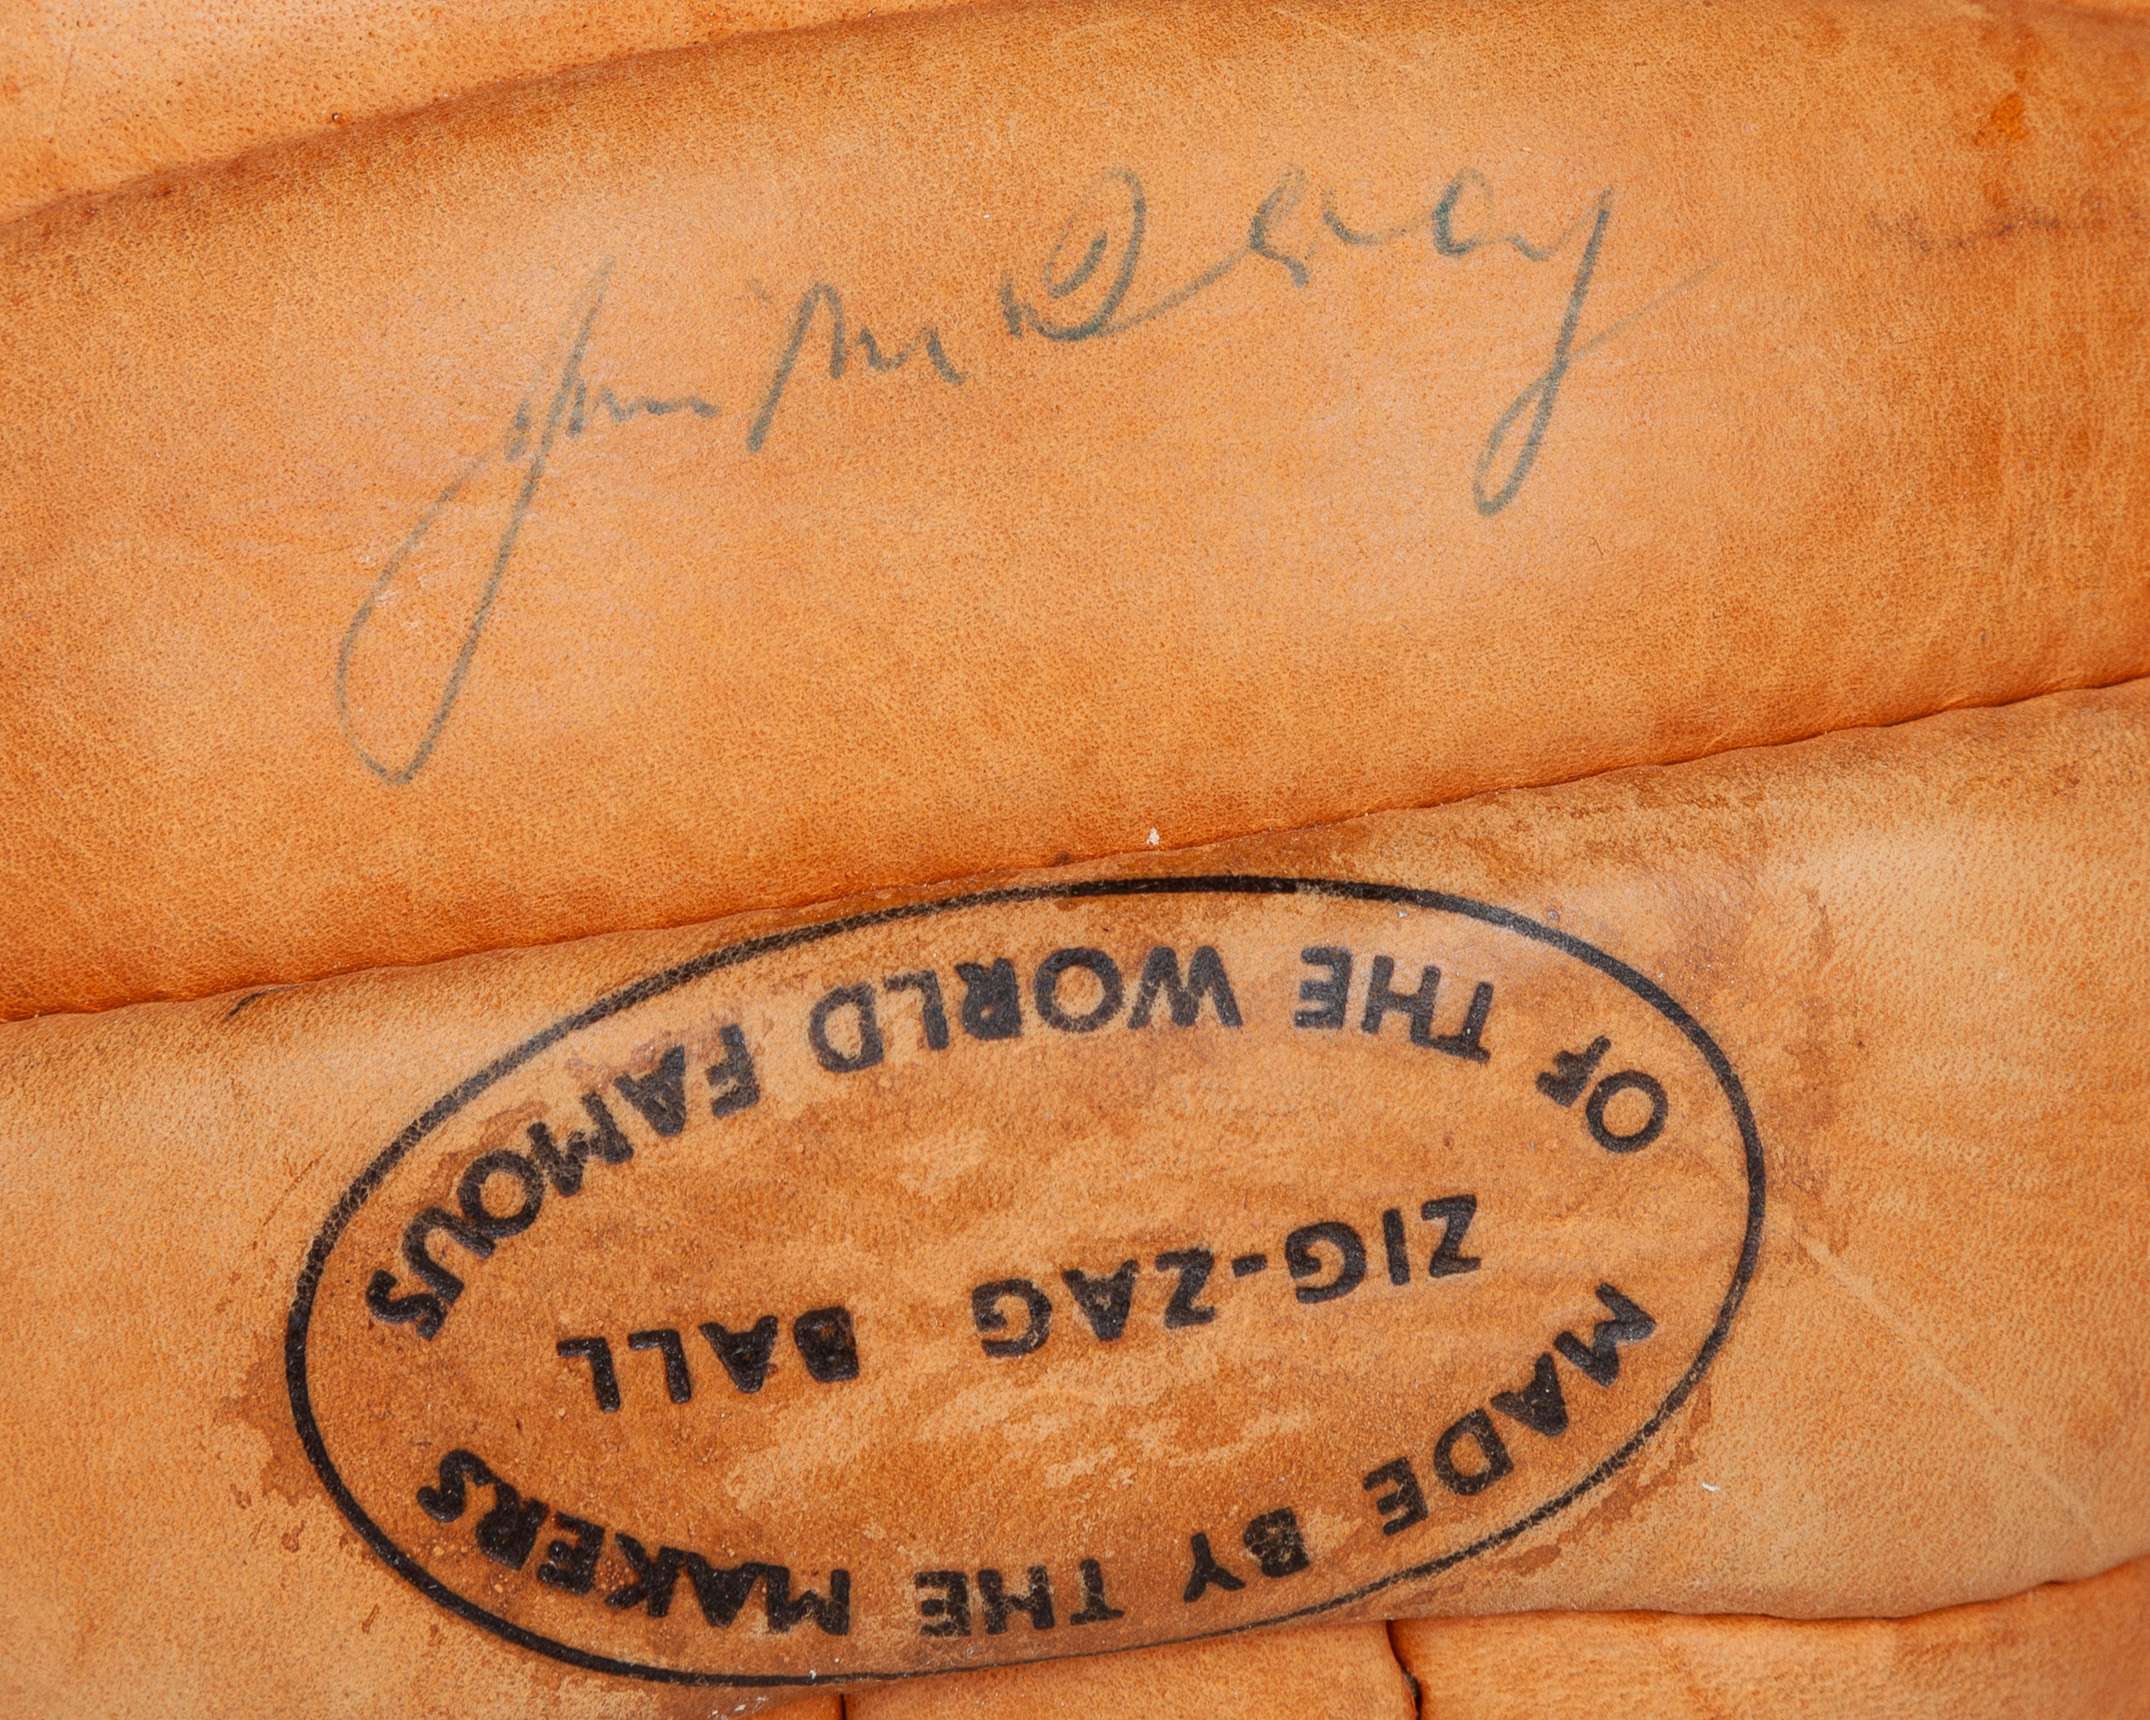 MADE BY THE MAKERS
ZIG-ZAG BALL
OF THE WORLD FAMOUS